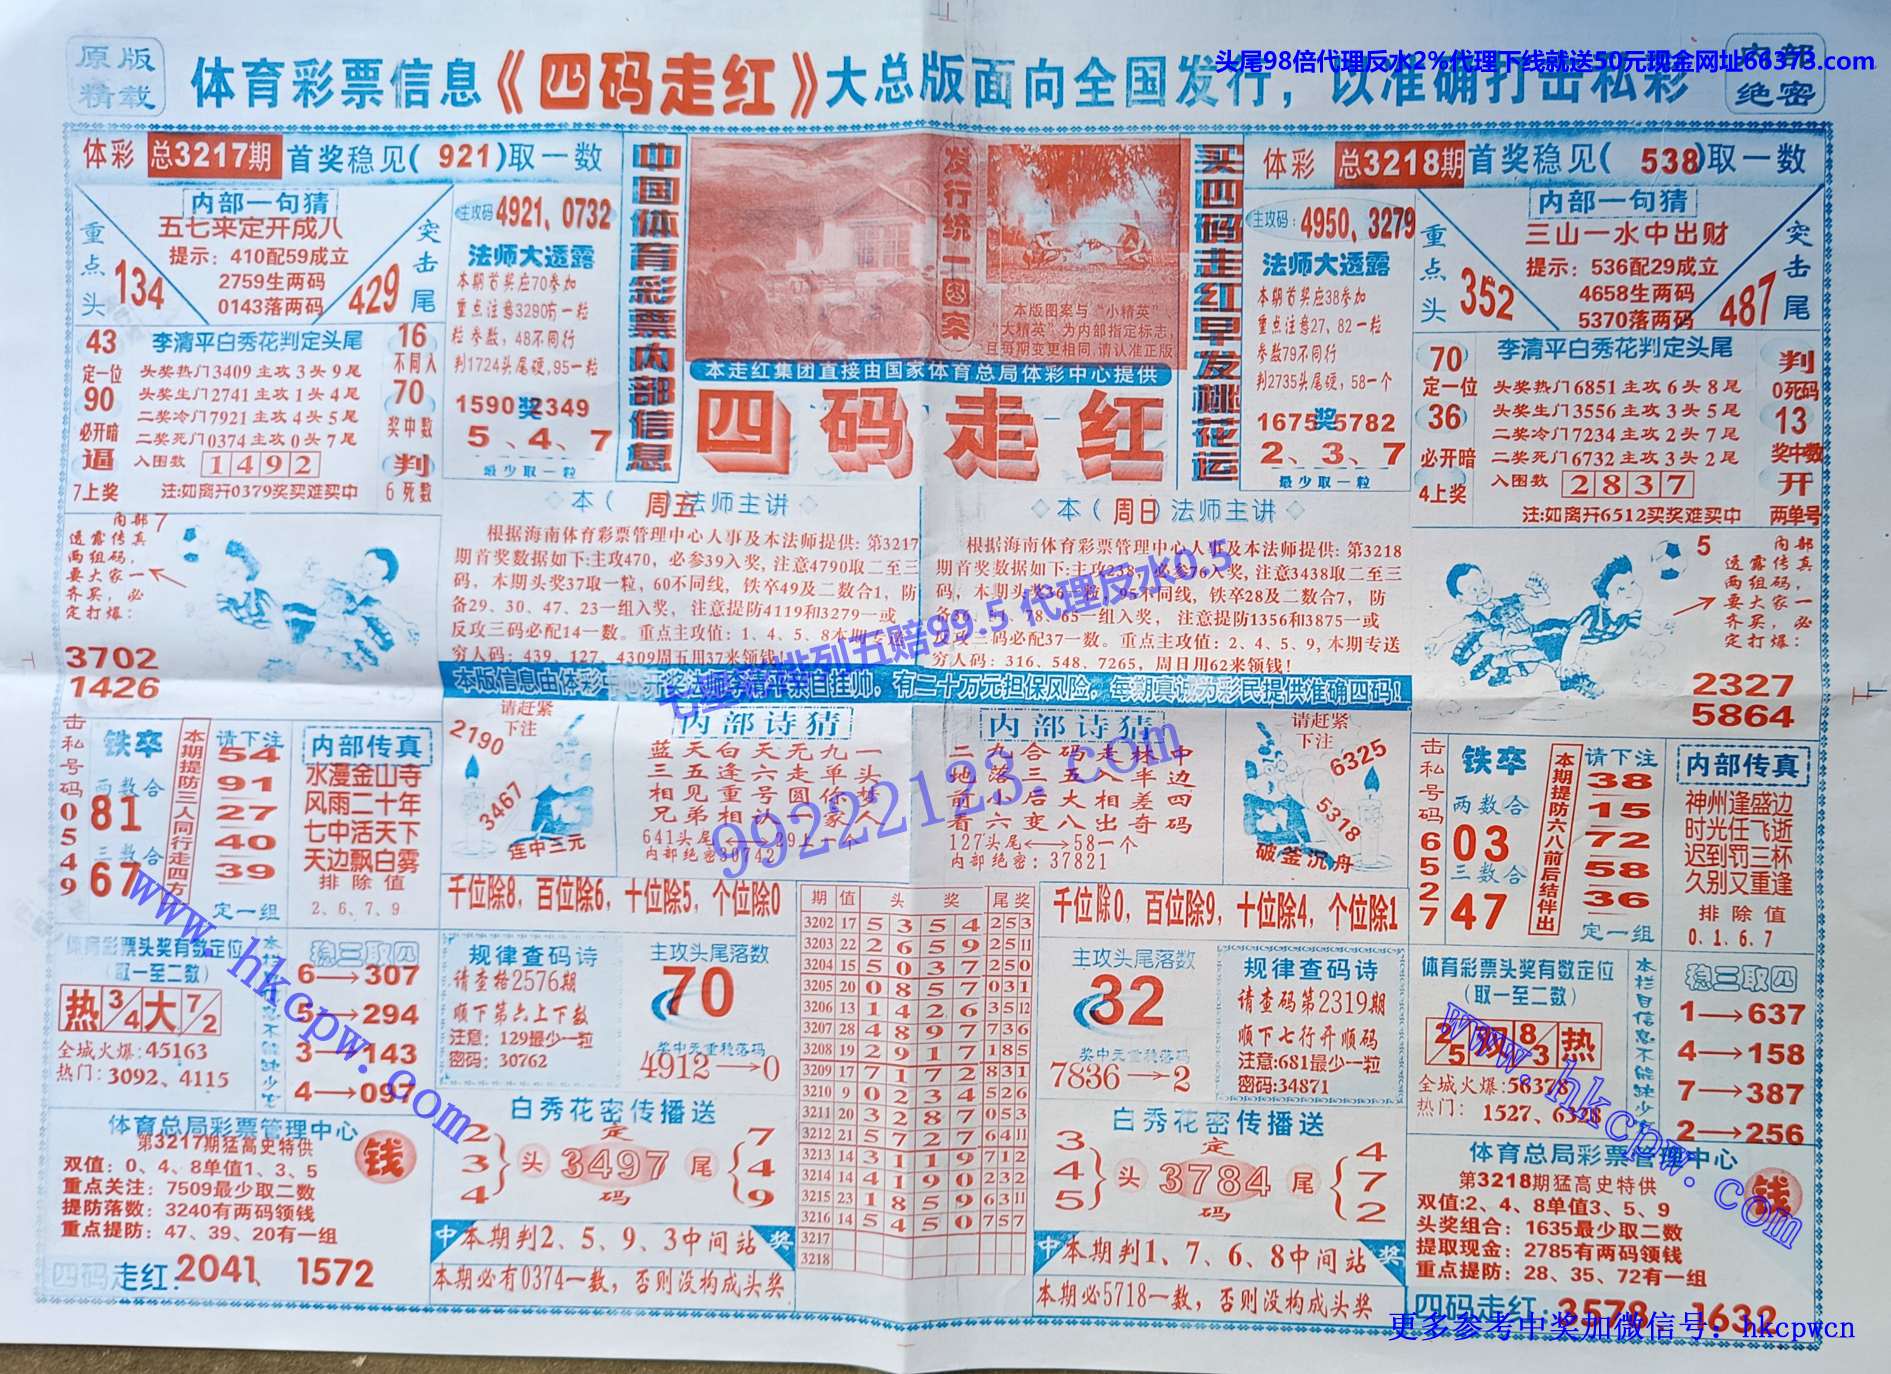 原版
精载
体育彩票信息《四码走红》大总版面向全国发行，以准确打击私彩
绝密
头尾98倍代理反水2%代理下线就送50元现金网址66373.com
体彩 总3217期 首奖稳见(921)取一数
内部一句猜
五七来定开成八
提示：410配59成立
2759生两码
0143落两码
重点头 134
突击尾 429
主攻码 4921、0732
法师大透露
本期首奖应70参加
重点注意3290防一粒
粒参数，48不同行
判1724头尾硬,95一粒
1590奖2349
5、4、7
最少取一粒
43
定一位
90
必开暗
逼
7上奖
李清平白秀花判定头尾
头奖热门3409主攻3头9尾
头奖生门2741主攻1头4尾
二奖冷门7921主攻4头5尾
二奖死门0374主攻0头7尾
入围数 1492
注:如离开0379奖买难买中
16
不同入
70
奖中数
判
6死数
中国体育彩票内部信息
发行统一图案
本版图案与“小精英”
“大精英”为内部指定标志,
且每期变更相同,请认准正版
本走红集团直接由国家体育总局体彩中心提供
四码走红
买四码走红早发桃花运
体彩 总3218期 首奖稳见(538)取一数
主攻码: 4950、3279
法师大透露
本期首奖应38参加
重点注意27、82一粒
参数79不同行
判2735头尾硬,58一个
1675奖5782
2、3、7
最少取一粒
内部一句猜
三山一水中出财
提示：536配29成立
4658生两码
5370落两码
重点头 352
突击尾 487
70
定一位
36
必开暗
4上奖
李清平白秀花判定头尾
头奖热门6851主攻6头8尾
头奖生门3556主攻3头5尾
二奖冷门7234主攻2头7尾
二奖死门6732主攻3头2尾
入围数 2837
注:如离开6512买奖难买中
判
0死码
13
奖中数
开
两单号
内部
透露传真
两组码,
要大家一
齐买，必
定打爆：
7
3702
1426
本(周五)法师主讲
根据海南体育彩票管理中心人事及本法师提供: 第3217
期首奖数据如下:主攻470，必参39入奖,注意4790取二至三
码，本期头奖37取一粒，60不同线，铁卒49及二数合1，防
备29、30、47、23一组入奖，注意提防4119和3279一或
反攻三码必配14一数。重点主攻值：1、4、5、8本期专送
穷人码：439、127、4309周五用37来领钱！
本(周日)法师主讲
根据海南体育彩票管理中心人事及本法师提供: 第3218
期首奖数据如下:主攻238，必参76入奖,注意3438取二至三
码，本期头奖36一粒，95不同线，铁卒28及二数合7，防
65一组入奖，注意提防1356和3875一或
反攻三码必配37一数。重点主攻值：2、4、5、9,本期专送
穷人码：316、548、7265，周日用62来领钱！
5
内部
透露传真
两组码，
要大家一
齐买，必
定打爆：
2327
5864
本版信息由体彩中心开奖法师李清平亲自挂帅，有二十万元担保风险，每期真诚为彩民提供准确四码！
七星彩排列五赔99.5 代理反水0.5
99222123.com
击私号码0549
铁卒
两数合
81
三数合
67
本期提防三人同行走四方
请下注
54
91
27
40
39
定一组
内部传真
水漫金山寺
风雨二十年
七中活天下
天边飘白雾
排除值
2、6、7、9
请赶紧
下注
2190
3467
连中三元
内部诗猜
蓝天白天无九一
三五逢六走单头
相见重号圆你梦
兄弟相认一家人
641头尾←→29上一个
内部绝密30742
内部诗猜
二九合码走林中
地落三五八半边
前小后大相差四
看六变八出奇码
127头尾←→58一个
内部绝密：37821
请赶紧
下注
6325
5318
破釜沉舟
击私号码6527
铁卒
两数合
03
三数合
47
本期提防六八前后结伴出
请下注
38
15
72
58
36
定一组
内部传真
神州逢盛边
时光任飞逝
迟到罚三杯
久别又重逢
排除值
0.1.6.7
千位除8，百位除6，十位除5，个位除0
千位除0，百位除9，十位除4，个位除1
体育彩票头奖有数定位
(取一至二数)
热 3/4 大 7/2
全城火爆:45163
热门：3092、4115
稳三取四
6→307
5→294
3→143
4→097
规律查码诗
请查格2576期
顺下第六上下数
注意：129最少一粒
密码：30762
主攻头尾落数
70
奖中天重稳落码
4912→0
期 值 头奖 尾奖
3202 17 5 3 5 4 2 5 3
3203 22 2 6 5 9 2 5 11
3204 15 5 0 3 7 2 5 0
3205 20 0 8 5 7 0 3 1
3206 13 1 4 2 6 3 5 12
3207 28 4 8 9 7 7 3 6
3208 19 2 9 1 7 1 8 5
3209 17 7 1 7 2 8 3 1
3210 9 0 2 3 4 5 2 6
3211 20 3 2 8 7 0 5 3
3212 21 5 7 2 7 6 4 11
3213 14 3 1 1 9 7 1 2
3214 14 4 1 9 0 2 3 2
3215 23 1 8 5 9 6 3 11
3216 14 5 4 5 0 7 5 7
3217
3218
主攻头尾落数
32
奖中天重稳落码
7836→2
规律查码诗
请查码第2319期
顺下七行开顺码
注意:681最少一粒
密码:34871
体育彩票头奖有数定位
(取一至二数)
2/5 双 8/3 热
全城火爆:56378
热门： 1527、6328
本栏目信息不能缺少
稳三取四
1→637
4→158
7→387
2→256
体育总局彩票管理中心
第3217期猛高史特供
双值：0、4、8单值1、3、5
重点关注：7509最少取二数
提防落数：3240有两码领钱
重点提防：47、39、20有一组
钱
四码走红：2041、1572
白秀花密传播送
2 3 4 头 定 3497 码 尾 7 4 9
中 本期判2、5、9、3中间站 奖
本期必有0374一数，否则没构成头奖
白秀花密传播送
3 4 5 头 定 3784 码 尾 4 7 2
中 本期判1、7、6、8中间站 奖
本期必5718一数，否则没构成头奖
体育总局彩票管理中心
第3218期猛高史特供
双值:2、4、8单值3、5、9
头奖组合：1635最少取二数
提取现金：2785有两码领钱
重点提防：28、35、72有一组
钱
四码走红：3578、1632
www.hkcpw.com
www.hkcpw.com
更多参考中奖加微信号：hkcpwcn